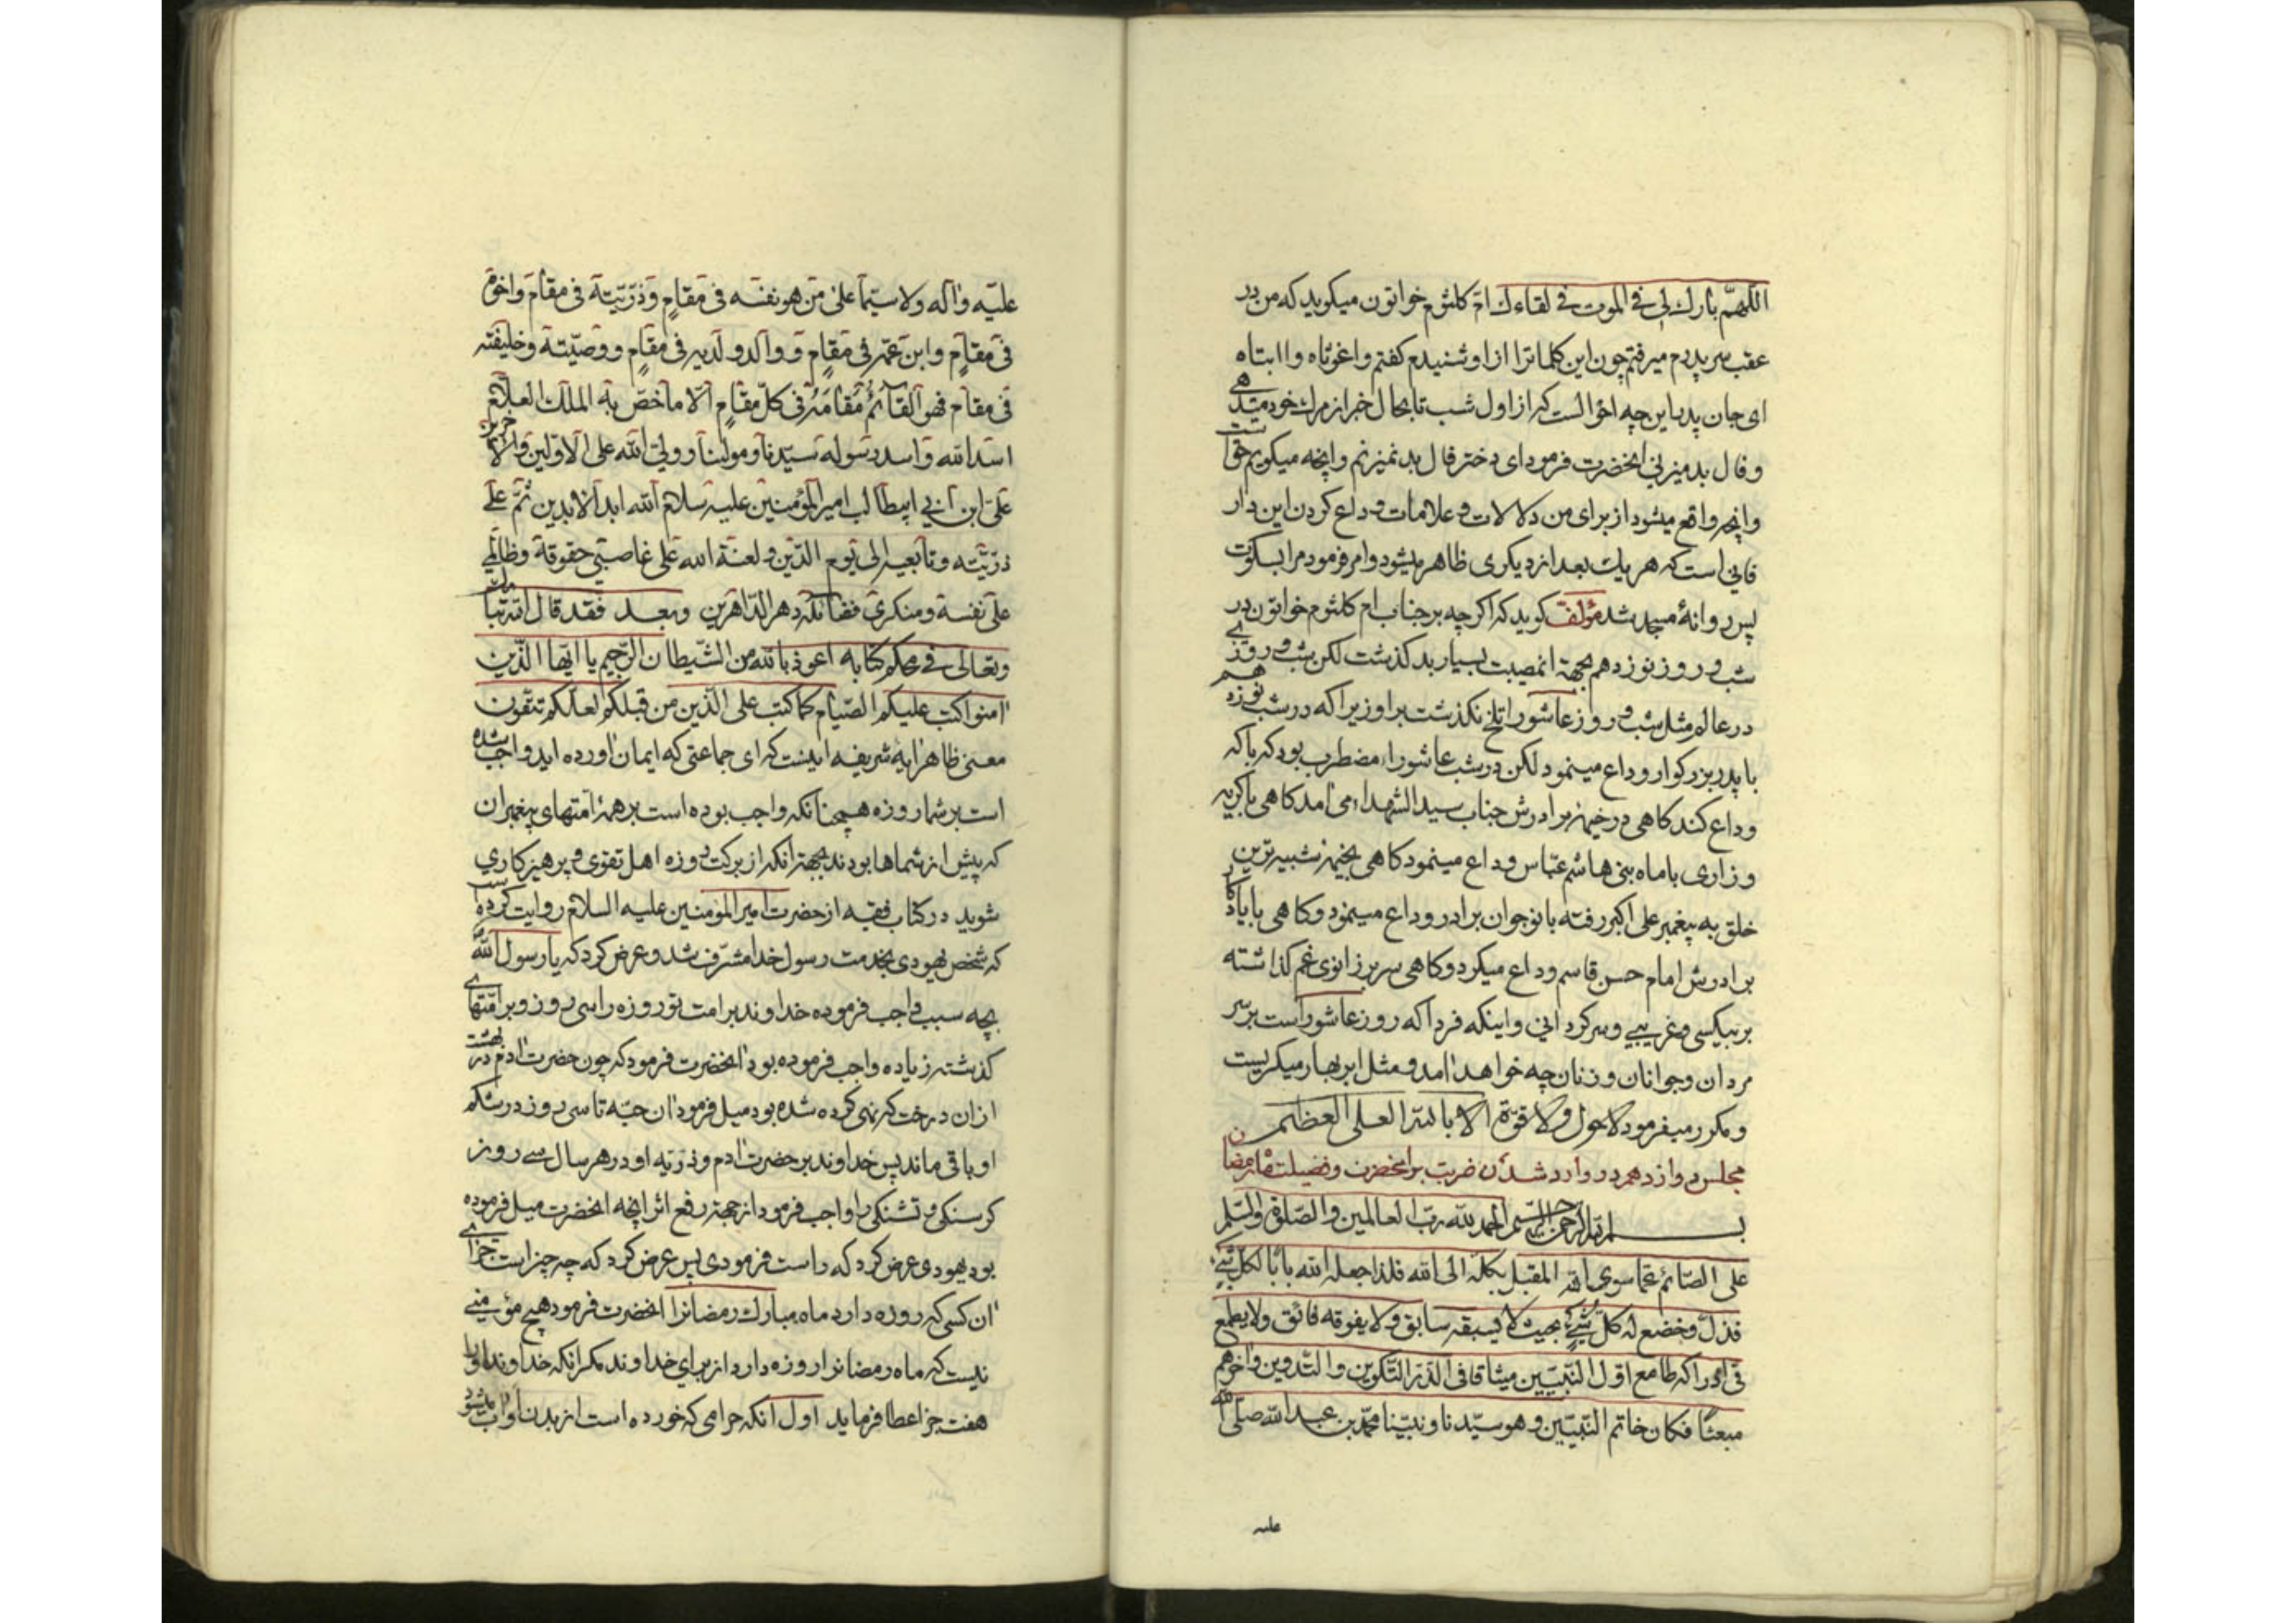 اللهمّ بارك لى فى الموت فى لقاءك امّ كلثوم خواتون ميكويد كه من در
عقب سر پدرم ميرفتم چون اين كلماترا ازاو شنيدم كفتم واغوثاه واابتاه
اى جان پدر اين چه احوالست كه از اول شب تا بحال خبر از مرك خود ميدهى
و فال بد ميزنى انحضرت فرمود اى دختر فال بد نميزنم وانچه ميكويم حق است
وانچه واقع ميشود از براى من دلالات و علامات وداع كردن اين دار
فانى است كه هر يك بعد از ديكرى ظاهر ميشود وامر فرمود مرا بسكوت
پس روانهٔ مسجد شد مؤلف كويد كه اكرچه بر جناب ام كلثوم خواتون در
شب و روز نوزدهم بجهة انمصيبت بسيار بد كذشت لكن شب و روزى
در عالم مثل شب و روز عاشورا تلخ نكذشت براو زيرا كه در شب نوزدهم
با پدر بزركوار وداع مينمود لكن در شب عاشورا مضطرب بود كه با كه
وداع كند كاهى در خيمهٔ برادرش جناب سيد الشهداء مى امد كاهى با كريه
و زارى با ماه بنى هاشم عبّاس وداع مينمود كاهى بخيمهٔ شبيه ترين
خلق به پيغمبر على اكبر رفته با نوجوان برادر وداع مينمود و كاهى با يادكار
برادرش امام حسن قاسم وداع ميكرد و كاهى سر بر زانوى غم كذاشته
بر بيكسى و غريبى و سركردانى و اينكه فردا كه روز عاشورا است بر سر
مردان و جوانان و زنان چه خواهد امد و مثل ابر بهار ميكريست
و مكرر ميفرمود لا حول ولا قوّة الا بالله العلى العظيم
مجلس دوازدهم در وارد شدن ضربت بر انحضرت و فضيلت ماه رمضان
بسم الله الرحمن الرحيم الحمد لله ربّ العالمين والصّلوة والسّلم
على الصّائم عمّا سوى الله المقبل بكله الى الله فلذا جعله الله بابًا لكل شىء
فذلّ وخضع له كلّ شىءٍ بحيث لا يسبقه سابق ولا يفوقه فائق ولا يطمع
فى ادراكه طامع اوّل النّبيّين ميثاقا فى الذّر التّكوين والتّدوين واخرهم
مبعثًا فكان خاتم النّبيّين وهو سيّدنا ونبيّنا محمّد بن عبد الله صلّى الله
عليه
عليه واله ولا سيّما على من هو نفسه فى مقامٍ وذرّيّته فى مقام واخوه
فى مقامٍ وابن عمّه فى مقامٍ ووالد ولديه فى مقامٍ ووصيّته وخليفته
فى مقام فهو القآئم مقامه فى كلّ مقامٍ الّا ما خصّ به الملك العلّام
اسد الله واسد رسوله سيّدنا ومولينا وولىّ الله على الاوّلين والاخرين
علىّ ابن ابى ابيطالب امير المؤمنين عليه سلام الله ابد الابدين ثمّ على
ذرّيّته وتابعيه الى يوم الدّين ولعنة الله على غاصبى حقوقه وظالمى
على نفسه ومنكرى فضائله دهر الدّاهرين وبعد فقد قال الله تبارك
وتعالى فى محكم كتابه اعوذ بالله من الشّيطان الرّجيم يا ايّها الّذين
امنوا كتب عليكم الصّيام كما كتب على الّذين من قبلكم لعلّكم تتّقون
معنى ظاهر ايهٔ شريفه اينست كه اى جماعتى كه ايمان اورده ايد واجب شده
است بر شما روزه همچنانكه واجب بوده است بر همهٔ امّتهاى پيغمبران
كه پيش از شماها بودند بجهة انكه از بركت روزه اهل تقوى و پرهيزكارى
شويد در كتاب فقيه از حضرت امير المؤمنين عليه السلام روايت كرده است
كه شخص يهودى بخدمت رسول خدا مشرّف شد و عرض كرد كه يا رسول الله
بچه سبب واجب فرموده خداوند بر امت تو روزه را سى روز و بر امّتهاى
كذشته زياده واجب فرموده بود انحضرت فرمود كه چون حضرت ادم در بهشت
از ان درخت كه نهى كرده شده بود ميل فرمود ان حبّه تا سى روز در شكم
او باقى ماند پس خداوند بر حضرت ادم و ذرّيه او در هر سال سى روز
كرسنكى و تشنكى را واجب فرمود از جهة رفع اثر انچه انحضرت ميل فرموده
بود يهودى عرض كرد كه راست فرمودى پس عرض كرد كه چه چيز است جزاى
ان كسى كه روزه دارد ماه مبارك رمضانرا انحضرت فرمود هيچ مؤمنى
نيست كه ماه رمضانرا روزه دارد از براى خداوند مكر انكه خداوند اورا
هفت چيز اعطا فرمايد اول انكه حرامى كه خورده است از بدن او اب ميشود